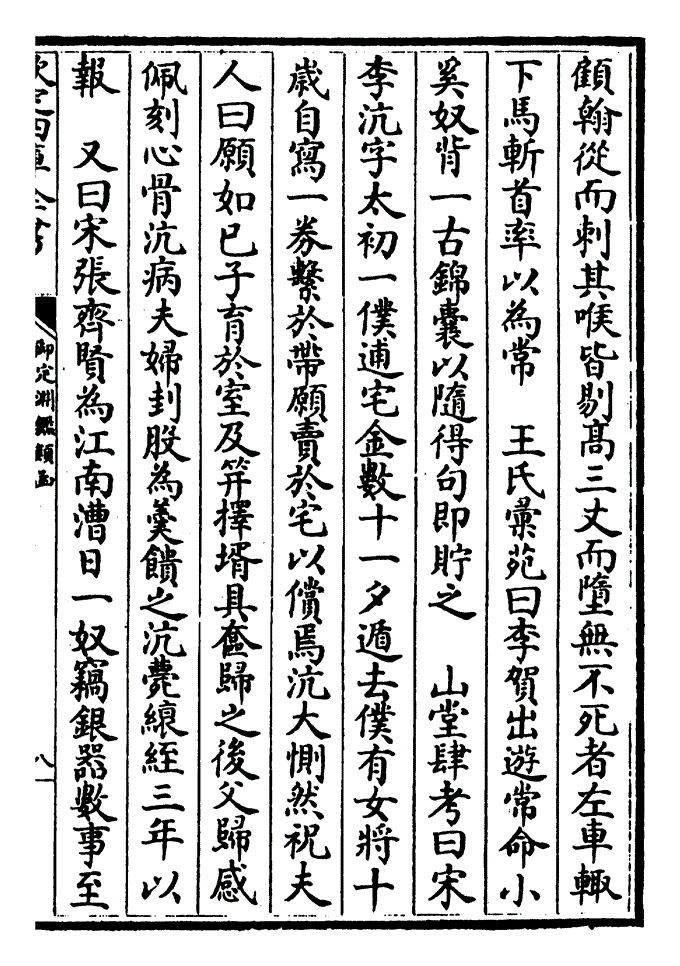 顧翰從而刺其喉皆剔髙三丈而墮無不死者左車輙
下馬斬首率以為常　王氏彚苑曰李賀出遊常命小
奚奴背一古錦囊以隨得句即貯之　山堂肆考曰宋
李沆字太初一僕逋宅金數十一夕遁去僕有女將十
嵗自寫一券繫於帶願賣於宅以償焉沆大惻然祝夫
人曰願如已子育於室及笄擇壻具奩歸之後父歸感
佩刻心骨沆病夫婦刲股為羹饋之沆薨縗絰三年以
報　又曰宋張齊賢為江南漕日一奴竊銀器數事至
欽定四庫全書
御定淵鑑類函
八